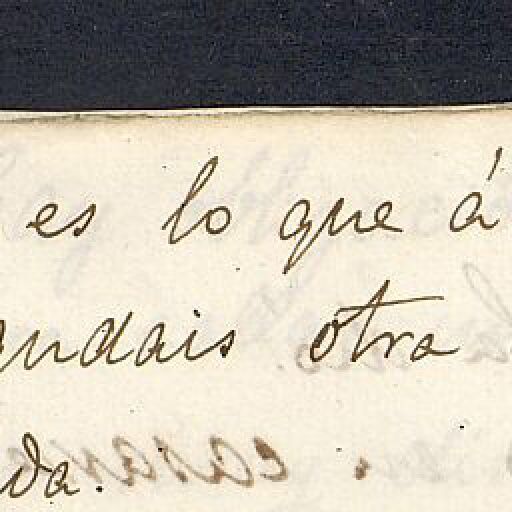 es lo que á
andais otra
da.